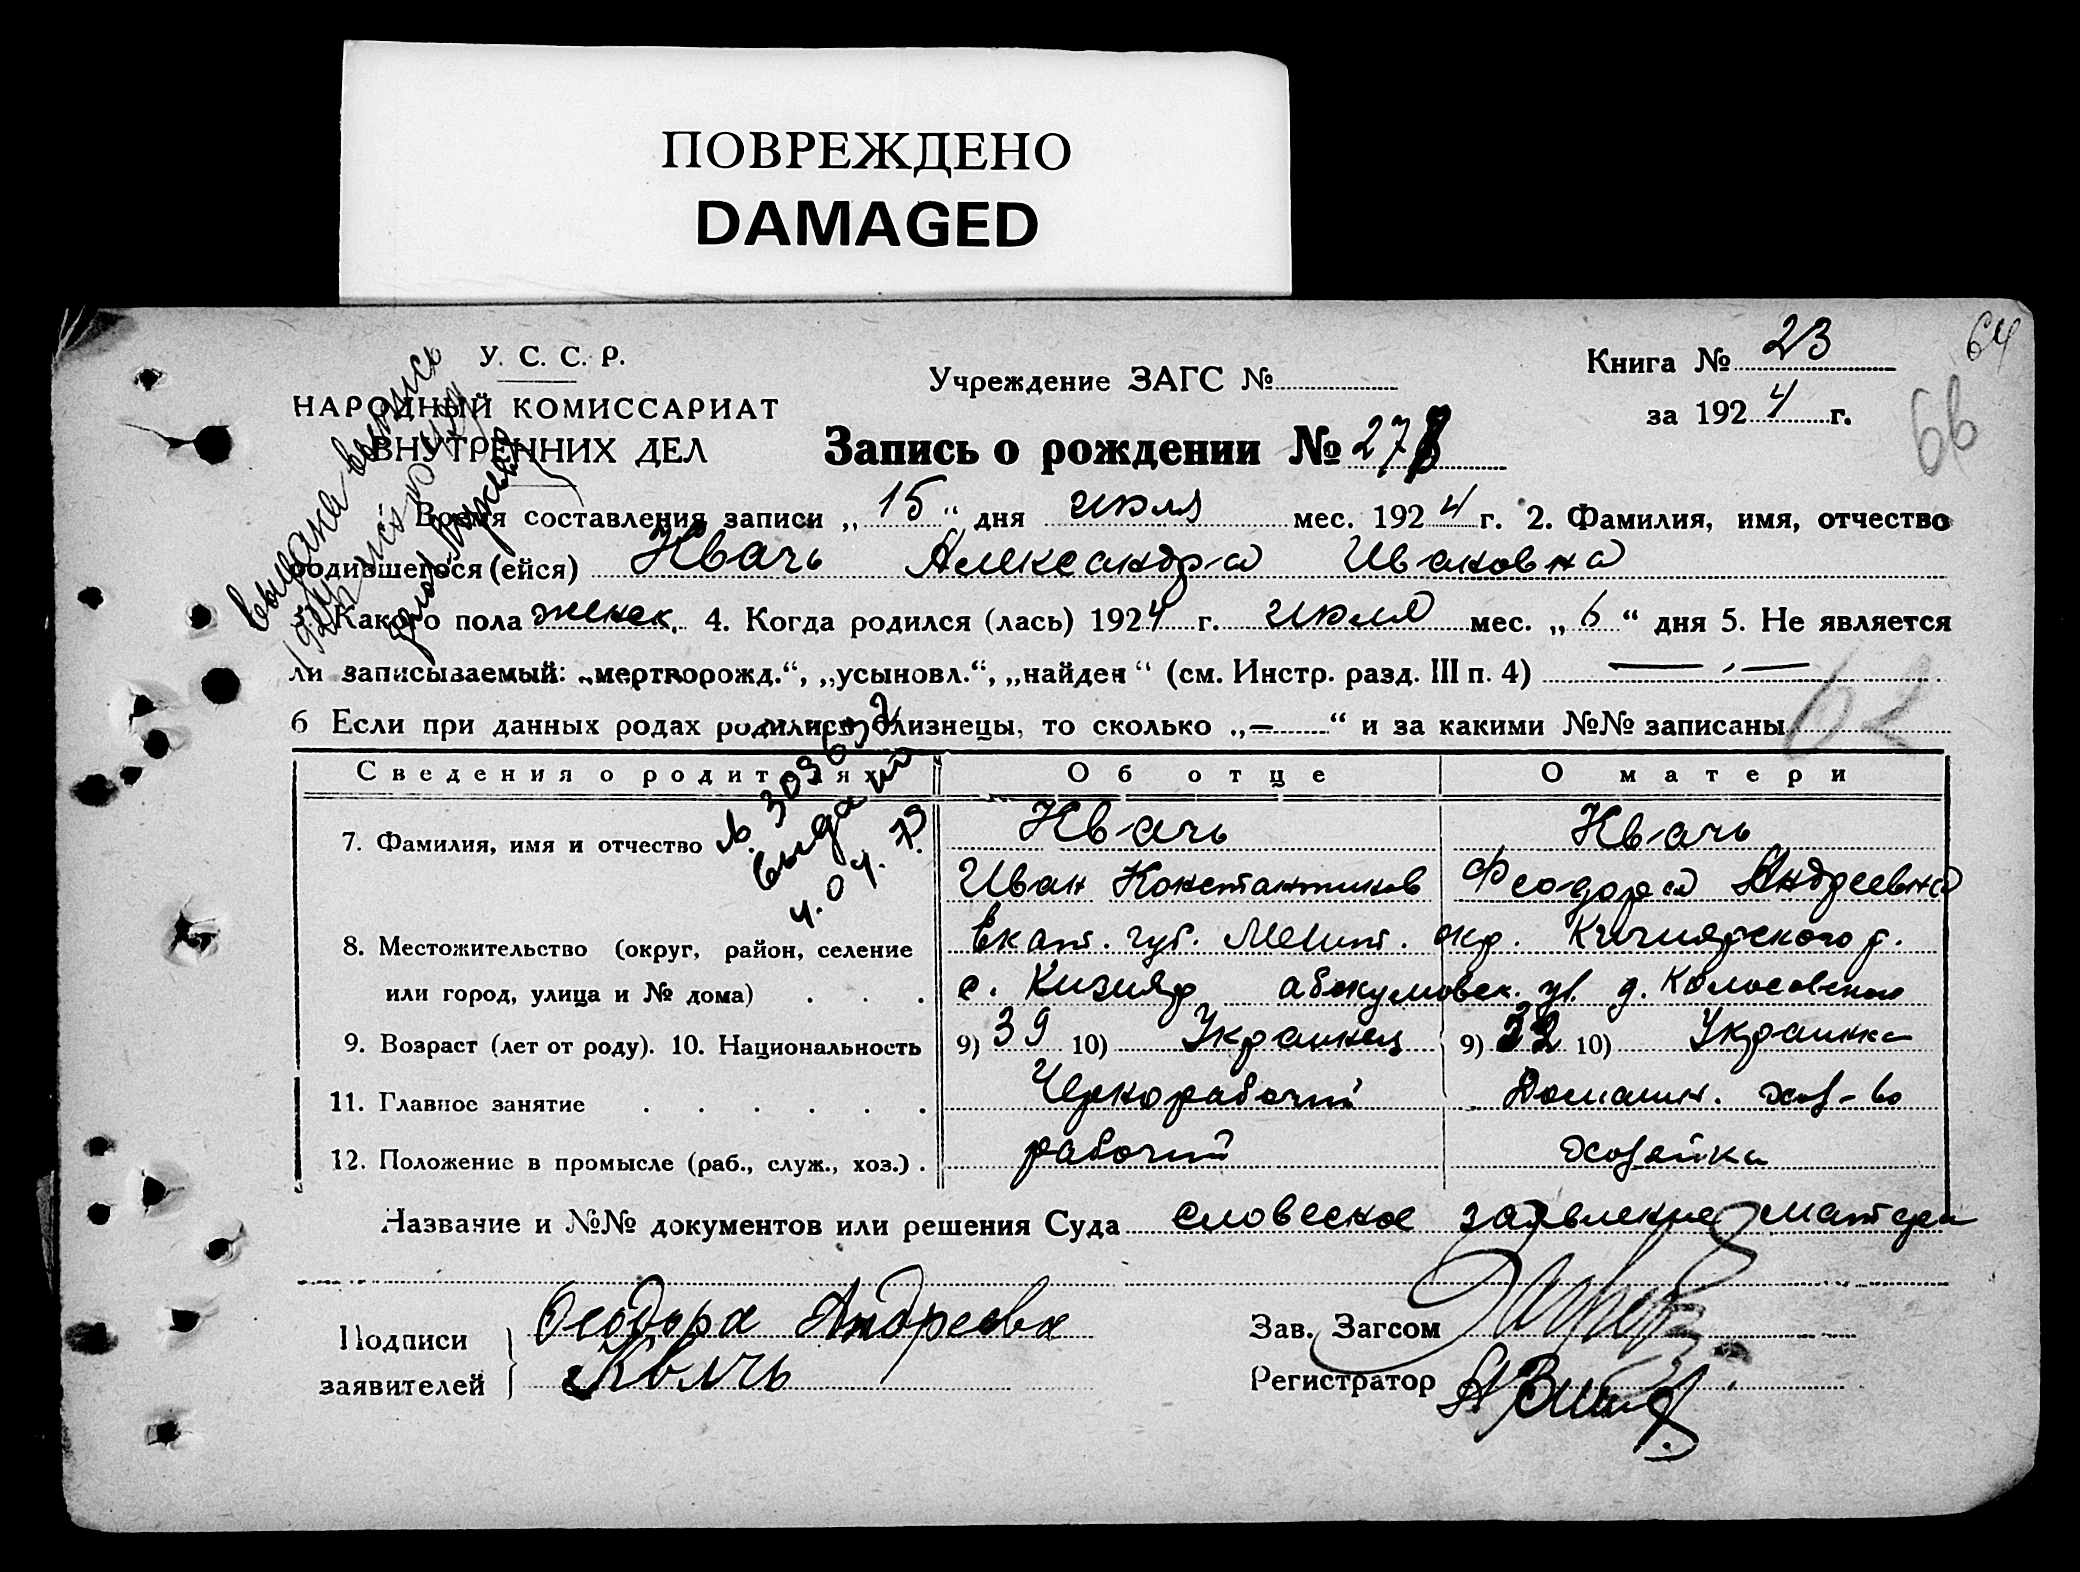 ПОВРЕЖДЕНО
DAMAGED
У. С. С. Р.
НАРОДНЫЙ КОМИССАРИАТ
ВНУТРЕННИХ ДЕЛ
Учреждение ЗАГС №
Книга № 23
за 1924 г.
64
66
Запись о рождении № 278
Время составления записи „15“ дня июля мес. 1924 г. 2. Фамилия, имя, отчество
родившегося (ейся) Квачь Александра Ивановна
3. Какого пола женск. 4. Когда родился (лась) 1924 г. июля мес. „6“ дня 5. Не является
ли записываемый: „мертворожд.“, „усыновл.“, „найден“ (см. Инстр. разд. III п. 4) — „ —
62
6 Если при данных родах родились близнецы, то сколько „—“ и за какими №№ записаны
выдана выпись
выдан
4. 04. 73
Сведения о родителях Об отце О матери
7. Фамилия, имя и отчество Квачь Квачь
Иван Константинов Феодора Андреевна
8. Местожительство (округ, район, селение Екат. губ. Мелит. окр. Кизиярского р.
или город, улица и № дома) . . . с. Кизияр ул. д.
9. Возраст (лет от роду). 10. Национальность 9) 39 10) Украинец 9) 32 10) Украинка
11. Главное занятие . . . . . . Чернорабочий Домашн. хоз-во
12. Положение в промысле (раб., служ., хоз.) . рабочий хозяйка
Название и №№ документов или решения Суда словесное заявление матери
Подписи заявителей } Феодора Андреева
Квачь
Зав. Загсом
Регистратор